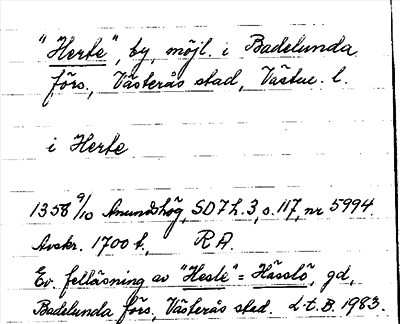 "Herte", by, möjl. i Badelunda
förs., Västerås stad, Västm. l.
i Herte
1358 9/10 Anundshög, SD 7 h. 3, s. 117, nr 5994.
Avskr. 1700 t., RA.
Ev. felläsning av "Hesle" = Hässlö, gd,
Badelunda förs, Västerås stad. L-t. B. 1983.